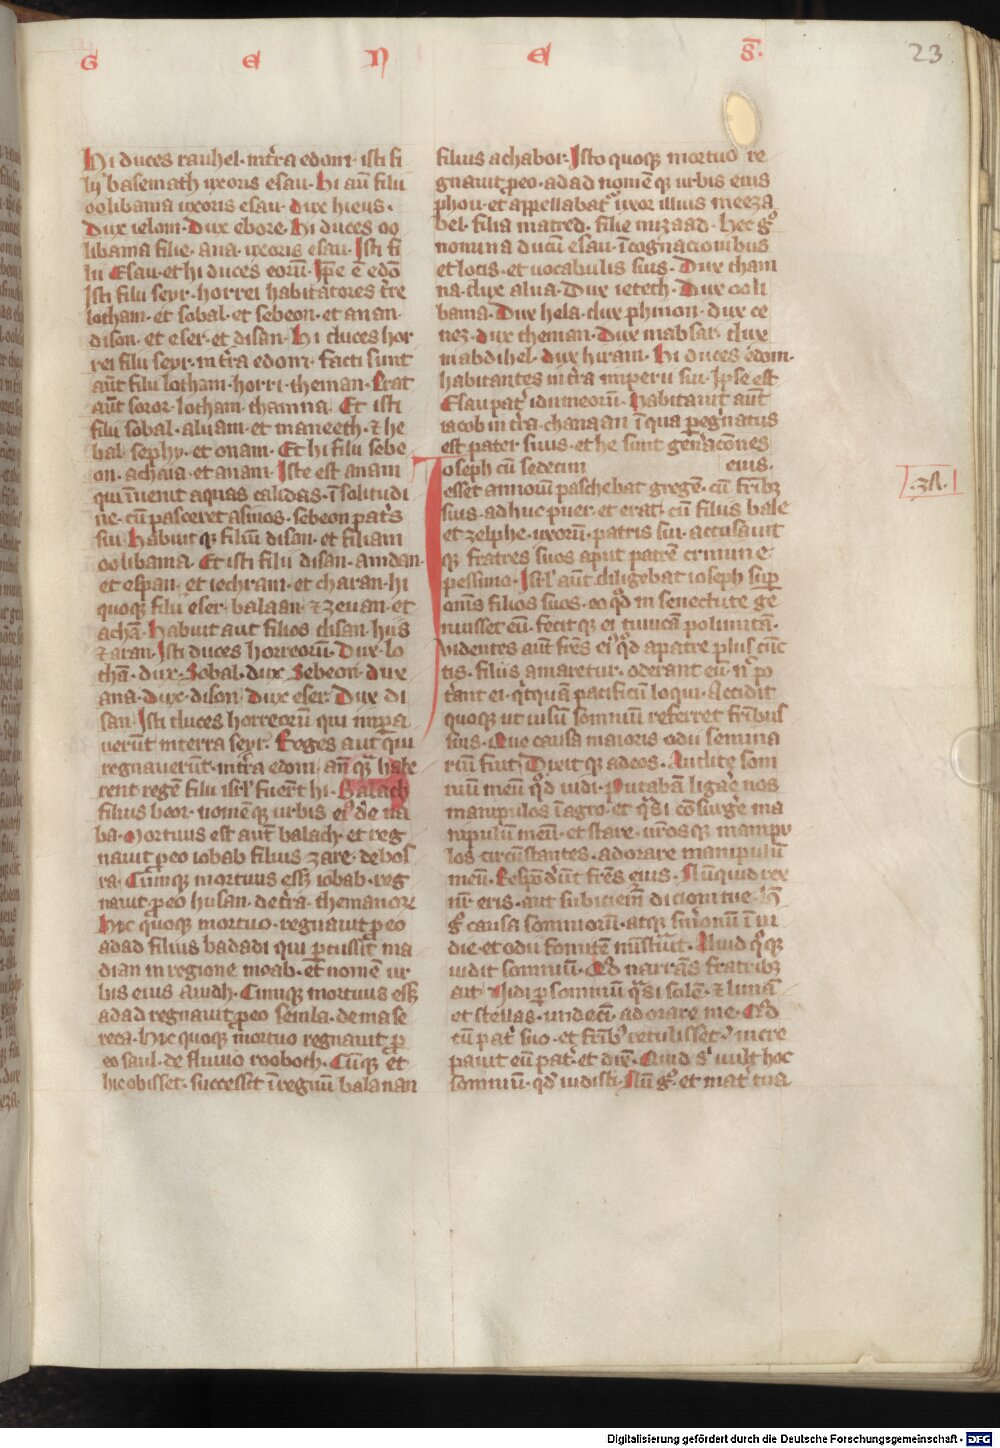 G E N E S̄.
23
Hi duces rauhel· int̄ra edom· isti fi
lij basemath uxoris esau· Hi aū filii
oolibama uxoris esau· Dux hieus·
Dux ielom· Dux chore· Hi duces oo
libama filie· ana· uxoris esau· Isti fi
lii Esau· et hi duces eorū· Ip̄e ē edō
Isti filii seyr· horrei habitatores t̄re
lotham· et sobal· et sebeon· et anan·
dison· et eser· et disan· Hi duces hor
rei filii seyr· in t̄ra edom· facti sunt
aūt filii lotham· horri· theman· Erat
aūt soror· lotham· thamna· Et isti
filii sobal· aluam· et maneeth· ⁊ he
bal· sephy· et onam· Et hi filii sebe
on· achaia· et anam· Iste est anam
qui īuenit aquas calidas· ī solitudi
ne· cū pasceret asinos· sebeon pat̄s
sui· Habuit qꝫ filiū disan· et filiam
oolibama· Et isti filii disan· amdan·
et espan· et iechram· et charan· hi
quoqꝫ filii eser· balaan· ⁊ zeuan· et
achā· Habuit aut filios disan· hus
⁊ aran· Isti duces horreorū· Dux· lo
thā· dux· Sobal· dux Sebeon· dux
ana· dux· dison· Dux eser· Dux di
san· Isti duces horreorū qui impa
uerūt in terra seyr· Reges aut qui
regnauerūt· int̄ra edom· an̄ qꝫ habe
rent regē filii isrl̄ fuert hi· Balach
filius beor· nomēqꝫ urbis eiꝰ de na
ba· Mortuus est aut̄ balach· et reg
nauit p̱eo iobab filius zare· de bos
ra· Cumqꝫ mortuus esꝫ iobab· reg
nauit p̱eo husan· de t̄ra· themanorꝫ
Hic quoqꝫ mortuo· regnauit p̱eo
adad filius badadi qui p̱cussit ma
dian in regione moab· et nomē ur
bis eius auidh· Cumqꝫ mortuus esꝫ
adad regnauit p̱eo semla· de mase
reca· Hic quoqꝫ mortuo regnauit p̱
eo saul· de fluuio rooboch· Cūqꝫ et
hic obisset· successit ī regnū balanan
filius achabor· Isto quoqꝫ mortuo re
gnauit p̱eo· adad nomē qꝫ urbis eius
phou· et appellabat̄ uxor illius meeza
bel· filia matred· filie mizaad· Hec gͦ
nomina ducū esau· ī cognacionibus
et locis· et uocabulis suis· Dux tham
na· dux alua· Dux ieteth· Dux ooli
bama· Dux hela· dux phinon· dux ce
nez· dux theman· Dux mabsar· dux
mabdihel· dux hiram· Hi duces edom·
habitantes in t̄ra imperii sui· Ipse est
Esau pat̄ idumeorū· Habitauit aūt
iacob in t̄ra· chanaan ī qua p̱eg̱natus
est pater suus· et he sunt gen̄acōnes
Ioseph cū sedecim eius·
·37·
esset annorū pascebat gregē· cū fr̄ibꝫ
suis· adhuc puer· et erat· cū filiis bale
et zelphe· uxorū· patris sui· accusauit
qꝫ fratres suos aput patrē crimine
pessimo· Isrl̄ aūt diligebat ioseph suꝑ
om̄s filios suos· eo qd̄ in senectute ge
nuisset eū· fecit qꝫ ei tunicā polimitā·
Videntes aūt fr̄es eiꝰ qd̄ a patre plus cūc
tis· filiis amaretur· oderant eū· n̄ po
t̄ant ei· q̄cquā pacificū loqui· Accidit
quoqꝫ ut uisū somniū referret fr̄ibus
suis· Que causa maioris odii semina
riū fuit· Dixit qꝫ ad eos· Audite som
niū meū qd̄ uidi· Putabā ligare nos
manipulos ī agro· et q̄si cōsurge̅ ma
nipulū meū· et stare· ur̄os qꝫ manipu
los circūstantes· adorare manipulū
meū· Respōderūt fr̄es eius· Nūquid rex
nr̄ eris· aut subiciem̄ dicioni tue· H̄
gͦ causa somniorū· atqꝫ sm̄onū ī ui
die· et odii fomitē mīstrauit· Aliud qͦqꝫ
uidit somniū· Qd̄ narrās fratribꝫ
ait· Uidi p̱ somniū q̄si solē· ⁊ lunā
et stellas· undecī adorare me· Qd̄
cū pat̄ suo· et fr̄ibꝰ retulisset· incre
pauit eū pat̄· et dix̄· Quid sͥ uult hoc
somniū· qd̄ uidisti· Nū gͦ· et mat̄ tua
Digitalisierung gefördert durch die Deutsche Forschungsgemeinschaft · DFG